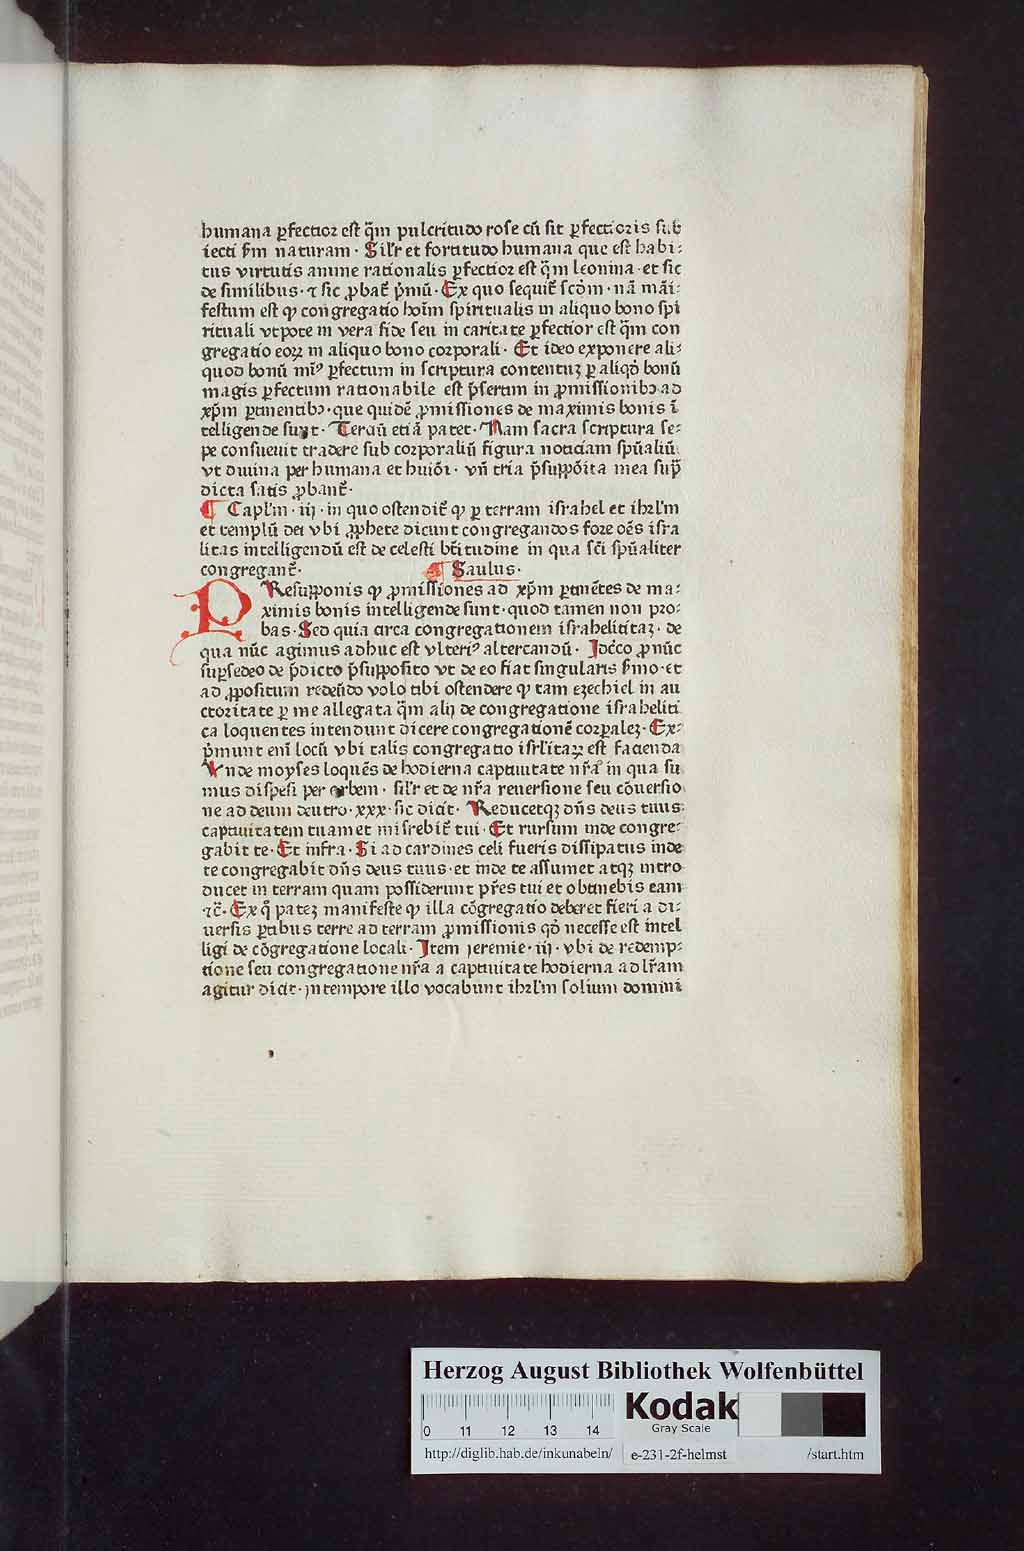 humana ꝑfectior est q̃m pulcritudo rose cũ sit ꝑfectioris sub
iecti s̃m naturam · Sil'r et fortitudo humana que est habi⸗
tus virtutis anime rationalis ꝑfectior est q̃m leonina · et sic
de similibus · ⁊ sic ꝓbat̃ p̃mũ · Ex quo sequit̃ scd̃m · nã mãi⸗
festum est ꝙ congregatio hoĩm spiritualis in aliquo bono spi
rituali vtpote in vera fide seu in caritate ꝑfectior est q̃m con
gregatio eoꝝ in aliquo bono corporali · Et ideo exponere ali⸗
quod bonũ minꝰ ꝑfectum in scriptura contentuʒ ꝑ aliqď bonũ
magis ꝑfectum rationabile est p̃sertim in ꝓmissionibꝫ ad
xp̃m ꝑtinentibꝫ · que quidẽ ꝓmissiones de maximis bonis ĩ
telligende sunt · Terciũ etiã patet · Nam sacra scriptura se⸗
pe consueuit tradere sub corporaliũ figura noticiam spũaliũ
vt diuina per humana et huiõi · vñ tria p̃suppõita mea sup̃
dicta satis ꝓbant̃ ·
¶ Capl'm · iij · in quo ostendit̃ ꝙ ꝑ terram israhel et ihrl'm
et templũ dei vbi ꝓphete dicunt congregandos fore oẽs isra
litas intelligendũ est de celesti bt̃itudine in qua sc̃i spũaliter
congregant̃ · ¶ Saulus ·
PResupponis ꝙ ꝓmissiones ad xp̃m ꝑtinẽtes de ma⸗
ximis bonis intelligende sunt · quod tamen non pro⸗
bas · Sed quia circa congregationem israheliticaʒ · de
qua nũc agimus adhuc est vlteriꝰ altercandũ · Idcco ꝓ nũc
suꝑsedeo de p̃dicto p̃supposito vt de eo fiat singularis s̃mo · et
ad ꝓpositum redeũdo volo tibi ostendere ꝙ tam ezechiel in au
ctoritate ꝑ me allegata q̃m alij de congregatione israheliti
ca loquentes intendunt dicere congregationẽ corꝑaleʒ · Ex⸗
p̃munt enĩ locũ vbi talis congregatio isrl'itaꝝ est facienda
Vnde moyses loquẽs de hodierna captiuitate nr̃a in qua su
mus dispersi per orbem · sil'r et de nr̃a reuersione seu cõuersio
ne ad deum deutro · xxx · sic dicit · Reducetqʒ dñs deus tuus
captiuitatem tuam et misrebit̃ tui · Et rursum inde congre⸗
gabit te · Et infra · Si ad cardines celi fueris dissipatus inde
te congregabit dñs deus tuus · et inde te assumet atqʒ intro
ducet in terram quam possiderunt pr̃es tui et obtinebis eam
·⁊c̃ · Ex q̃ pateʒ manifeste ꝙ illa cõgregatio deberet fieri a di⸗
uersis ꝑtibus terre ad terram ꝓmissionis qď necesse est intel
ligi de cõgregatione locali · Item jeremie · iij · vbi de redemp⸗
tione seu congregatione nr̃a a captiuitate hodierna ad lr̃am
agitur dicit · in tempore illo vocabunt ihrl'm solium domini
Herzog August Bibliothek Wolfenbüttel
0 11 12 13 14
Kodak
Gray Scale
http://diglib.hab.de/inkunabeln/ e-231-2f-helmst /start.htm